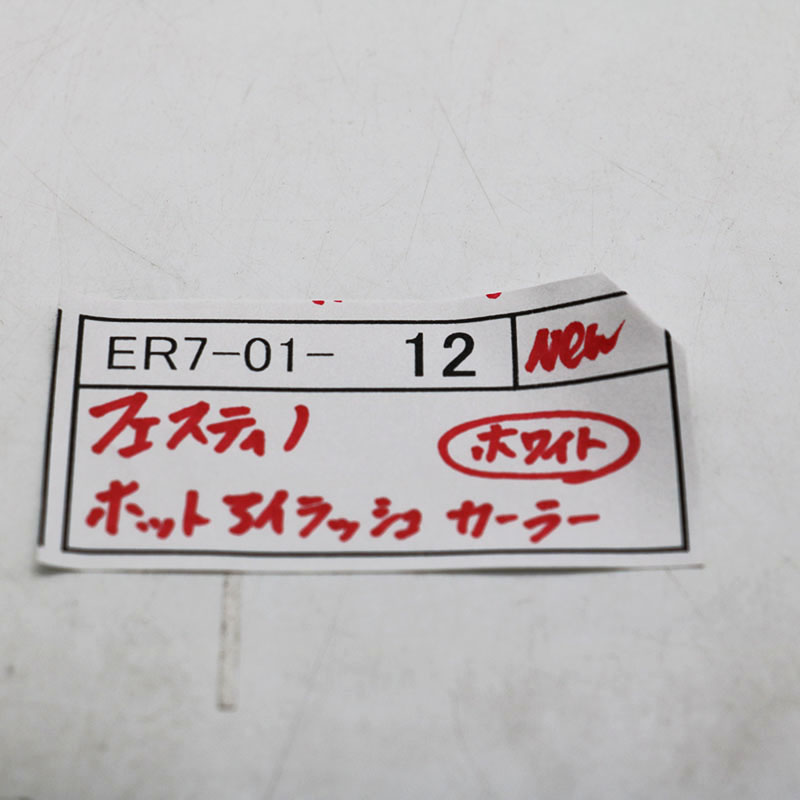 ER7-01- 12 New
フェスティノ ホワイト
ホットアイラッシュカーラー